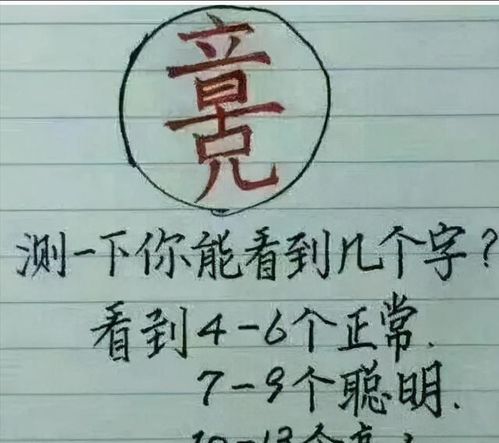 测一下你能看到几个字?
看到4-6个正常.
7-9个聪明.
10-13个